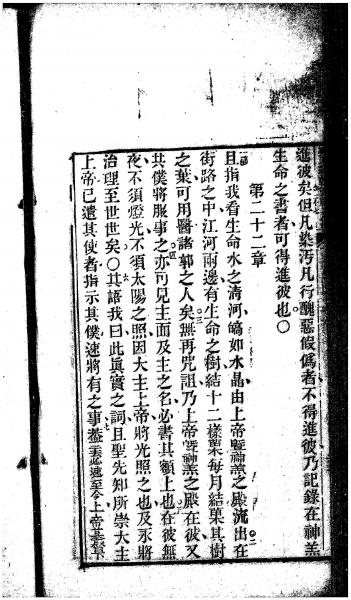 進彼矣但凡染汚凡行醜惡假僞者不得進彼乃記錄在神羔
生命之書者可得進彼也〇
第二十二章
且指我看生命水之清河皜如水晶由上帝暨神羔之殿流出在
街路之中江河兩邊有生命之樹結十二樣菓每月結菓其樹
之葉可用醫諸郭之人矣無再咒詛乃上帝暨神羔之殿在彼又
共僕將服事之亦可見主面及主之名必書其額上也在彼無
夜不須燈光不須太陽之照因大主上帝將光照之也及永將
治理至世世矣〇其語我曰此眞實之詞且聖先知所崇大主
上帝已遣其使者指示其僕速將有之事